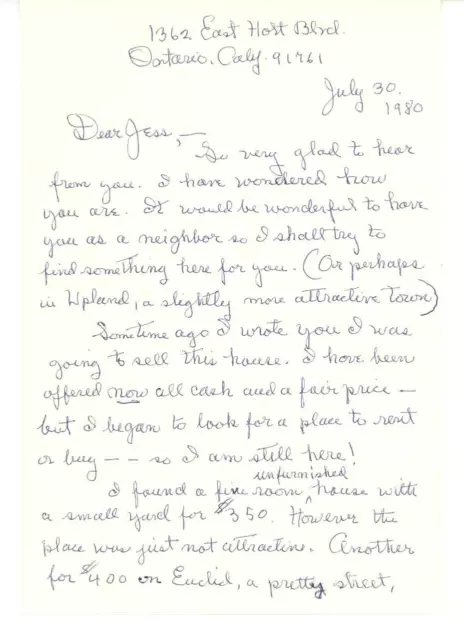 1362 East Hott Blvd.
Ontario, Caly. 91761
July 30.
1980
Dear Jess, —
So very glad to hear
from you. I have wondered how
you are. It would be wonderful to have
you as a neighbor so I shall try to
find something here for you. (Or perhaps
in Upland, a slightly more attractive town)
Sometime ago I wrote you I was
going to sell this house. I have been
offered now all cash and a fair price —
but I began to look for a place to rent
or buy — — so I am still here!
unfurnished
I found a five room ^ house with
a small yard for $350. However the
place was just not attractive. Another
for $400 on Euclid, a pretty street,